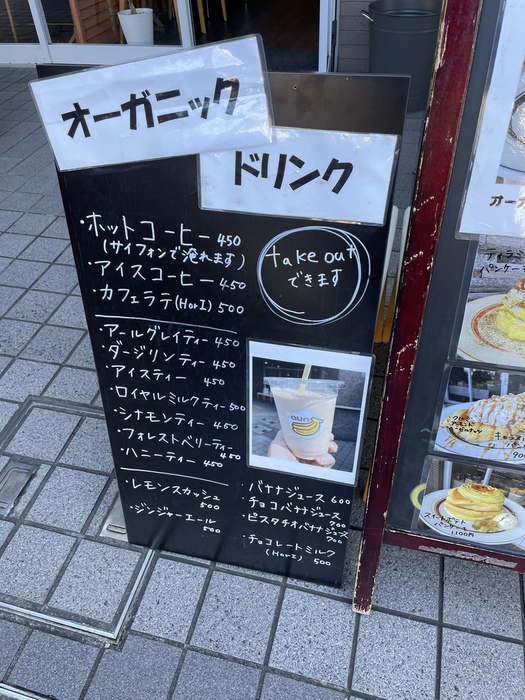 オーガニック
ドリンク
・ホットコーヒー 450
(サイフォンで淹れます)
・アイスコーヒー 450
・カフェラテ(HorI) 500
take out
できます
・アールグレイティー 450
・ダージリンティー 450
・アイスティー 450
・ロイヤルミルクティー 500
・シナモンティー 450
・フォレストベリーティー 450
・ハニーティー 450
・レモンスカッシュ 500
・ジンジャーエール 500
・バナナジュース 600
・チョコバナナジュース 700
・ピスタチオバナナジュース 700
・チョコレートミルク
(HorI) 500
オーガ
ティラミ
パンケーキ
キャラメ
900
パンケーキ
1100円